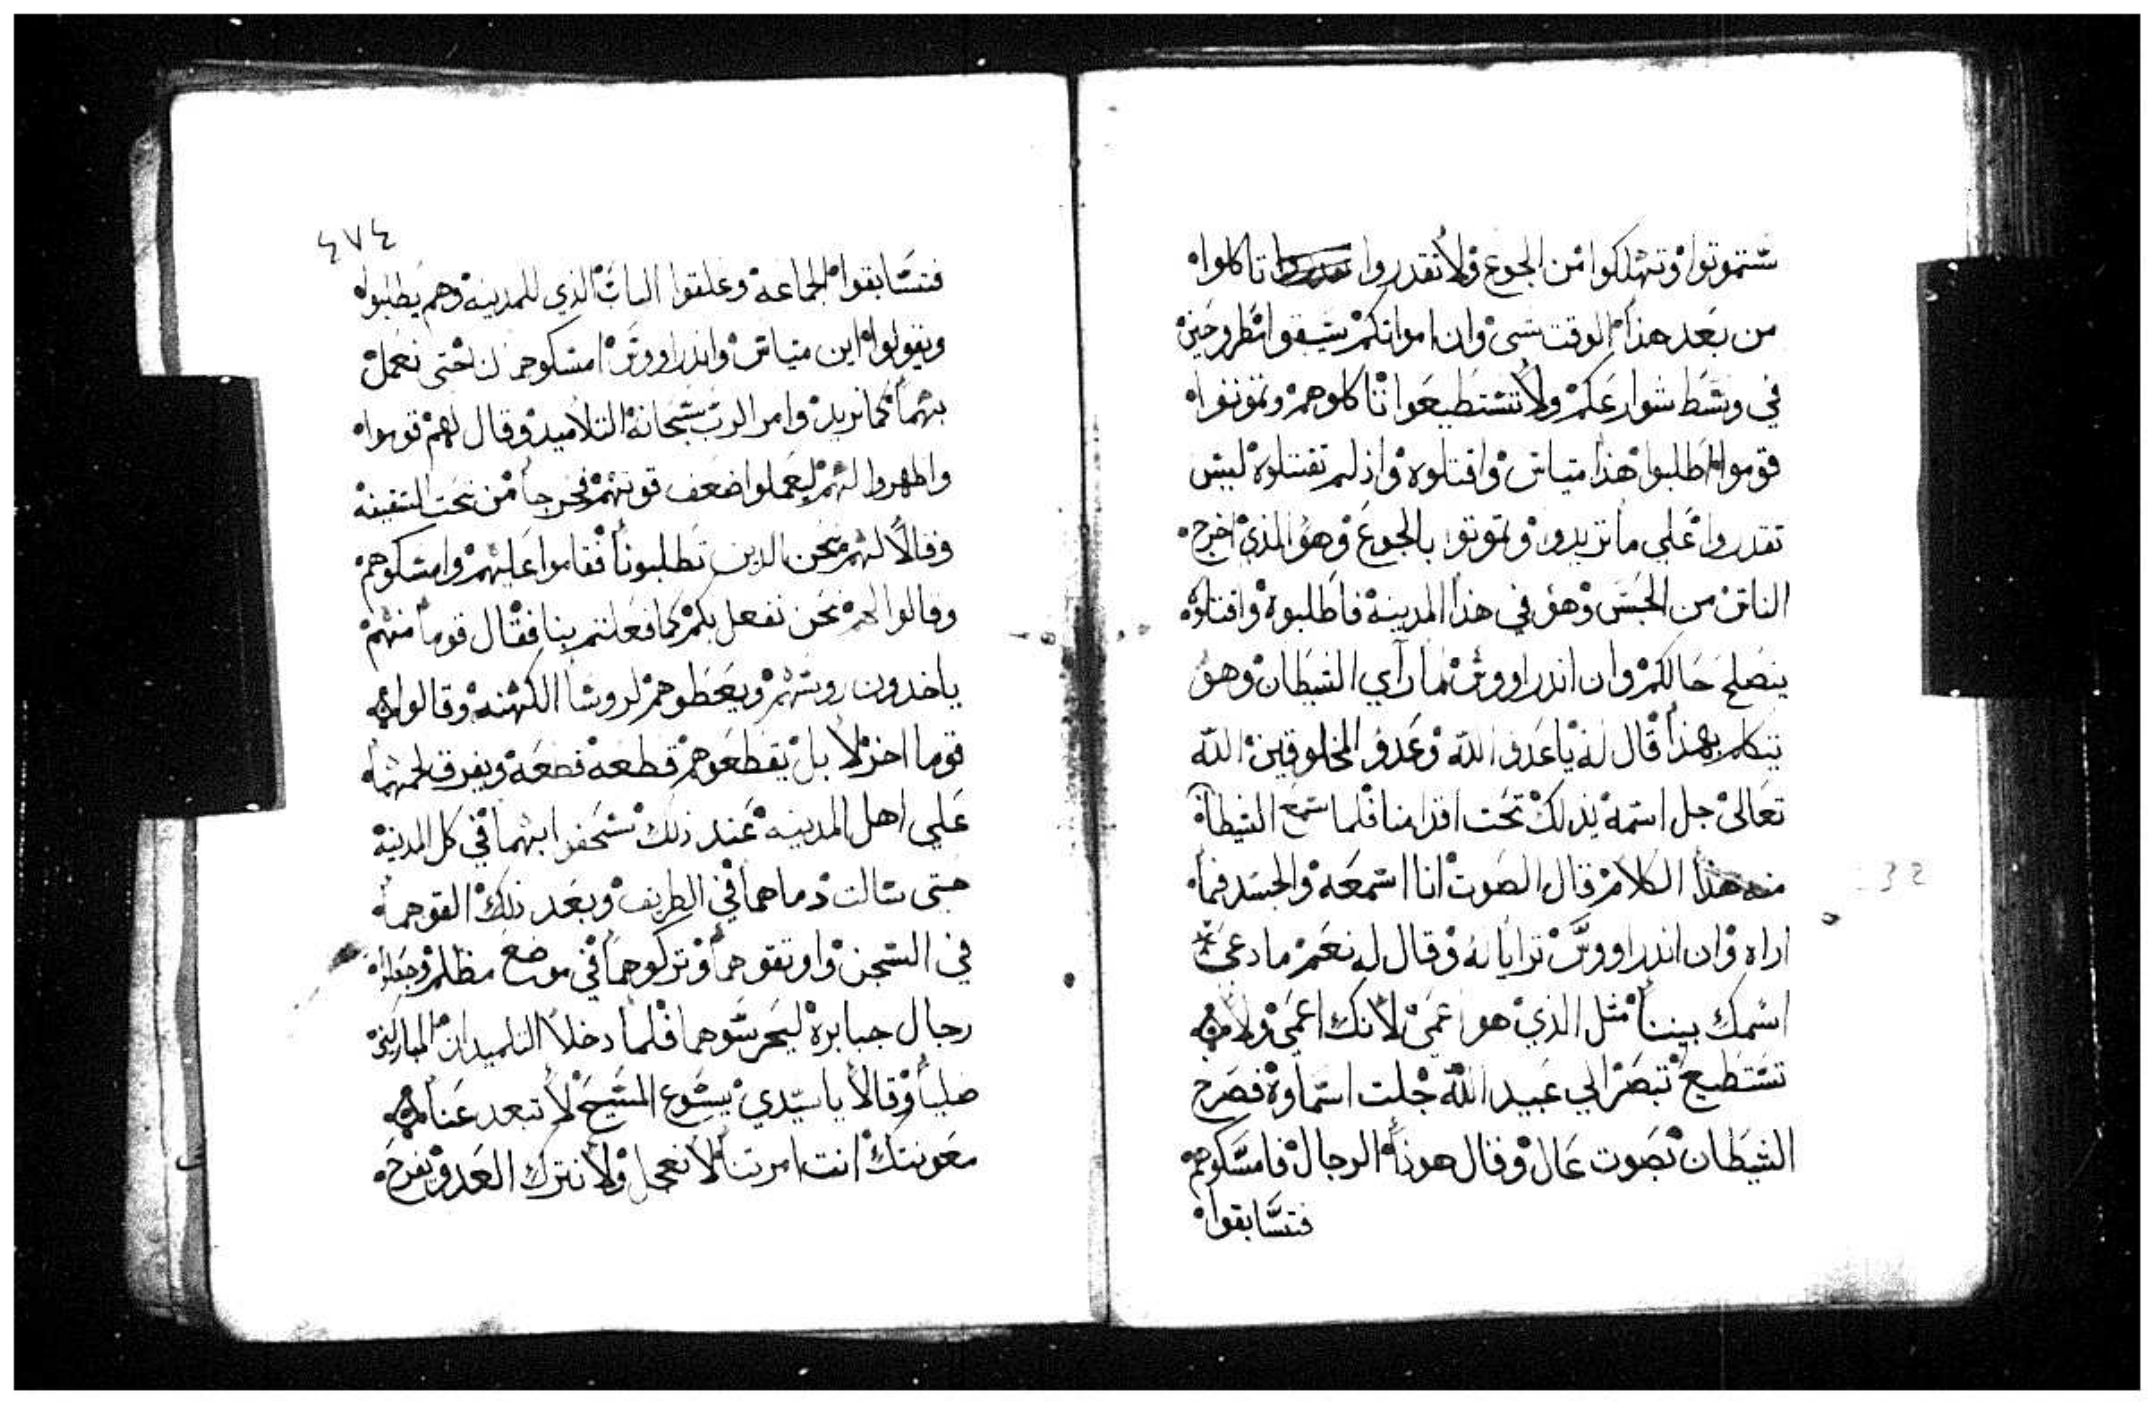 ستموتوا وتهلكوا من الجوع ولا تقدروا تاكلوا
من بعد هذا الوقت شى وان امواتكم ستبقوا مطروحين
في وسط شوارعكم ولا تستطيعوا تاكلوهم وتموتوا
قوموا اطلبوا هذا متياس واقتلوه واذ لم تقتلوه ليس
تقدروا علي ما تريدوا وتموتوا بالجوع وهو الذي اخرج
الناس من الحبس وهو في هذا المدينه فاطلبوه واقتلوه
ينصلح حالكم وان اندراووس لما راي الشيطان وهو
يتكلم بهذا قال له يا عدو الله وعدو المخلوقين الله
تعالى جل اسمه يذلك تحت اقدامنا فلما سمع الشيطان
منه هذا الكلام قال الصوت انا اسمعه والجسد فما
اراه وان اندراووس ترايا له وقال له نعم ما دعي
اسمك بيننا مثل الذي هو اعمى لانك اعمى ولا
تستطيع تبصر الي عبيد الله جلت اسماوه فصرخ
الشيطان بصوت عال وقال هوذا الرجال فامسكوهم
فتسابقوا
٤٧٤
فتسابقوا الجماعه وغلقوا الباب الذي للمدينه وهم يطلبوا
ويقولوا اين متياس واندراووس امسكوهم لنا حتى نعمل
بهما كما نريد وامر الرب سبحانه التلاميد وقال لهم قوموا
واظهروا لهم ليعملوا ضعف قوتهم فخرجا من تحت السقيفه
وقالا لهم نحن الدين تطلبونا فقاموا عليهم وامسكوهم
وقالوا لهم نحن نفعل بكم كما فعلتم بنا فقال قوما منهم
ياخدون روسهم ويعطوهم لروسا الكهنه وقالوا
قوما اخر لا بل نقطعوهم قطعه قطعه ونفرق لحمهما
علي اهل المدينه عند ذلك سحفوا بهما في كل المدينه
حتى سالت دماهما في الطريق وبعد ذلك القوهما
في السجن واوتقوهما وتركوهما في موضع مظلم وجعلوا
رجال جبابره ليحرسوهما فلما دخلا التلميدان المباركين
صليا وقالا يا سيدي يسوع المسيح لا تبعد عنا
معونتك انت امرتنا لا نعجل ولا نترك العدو يفرح